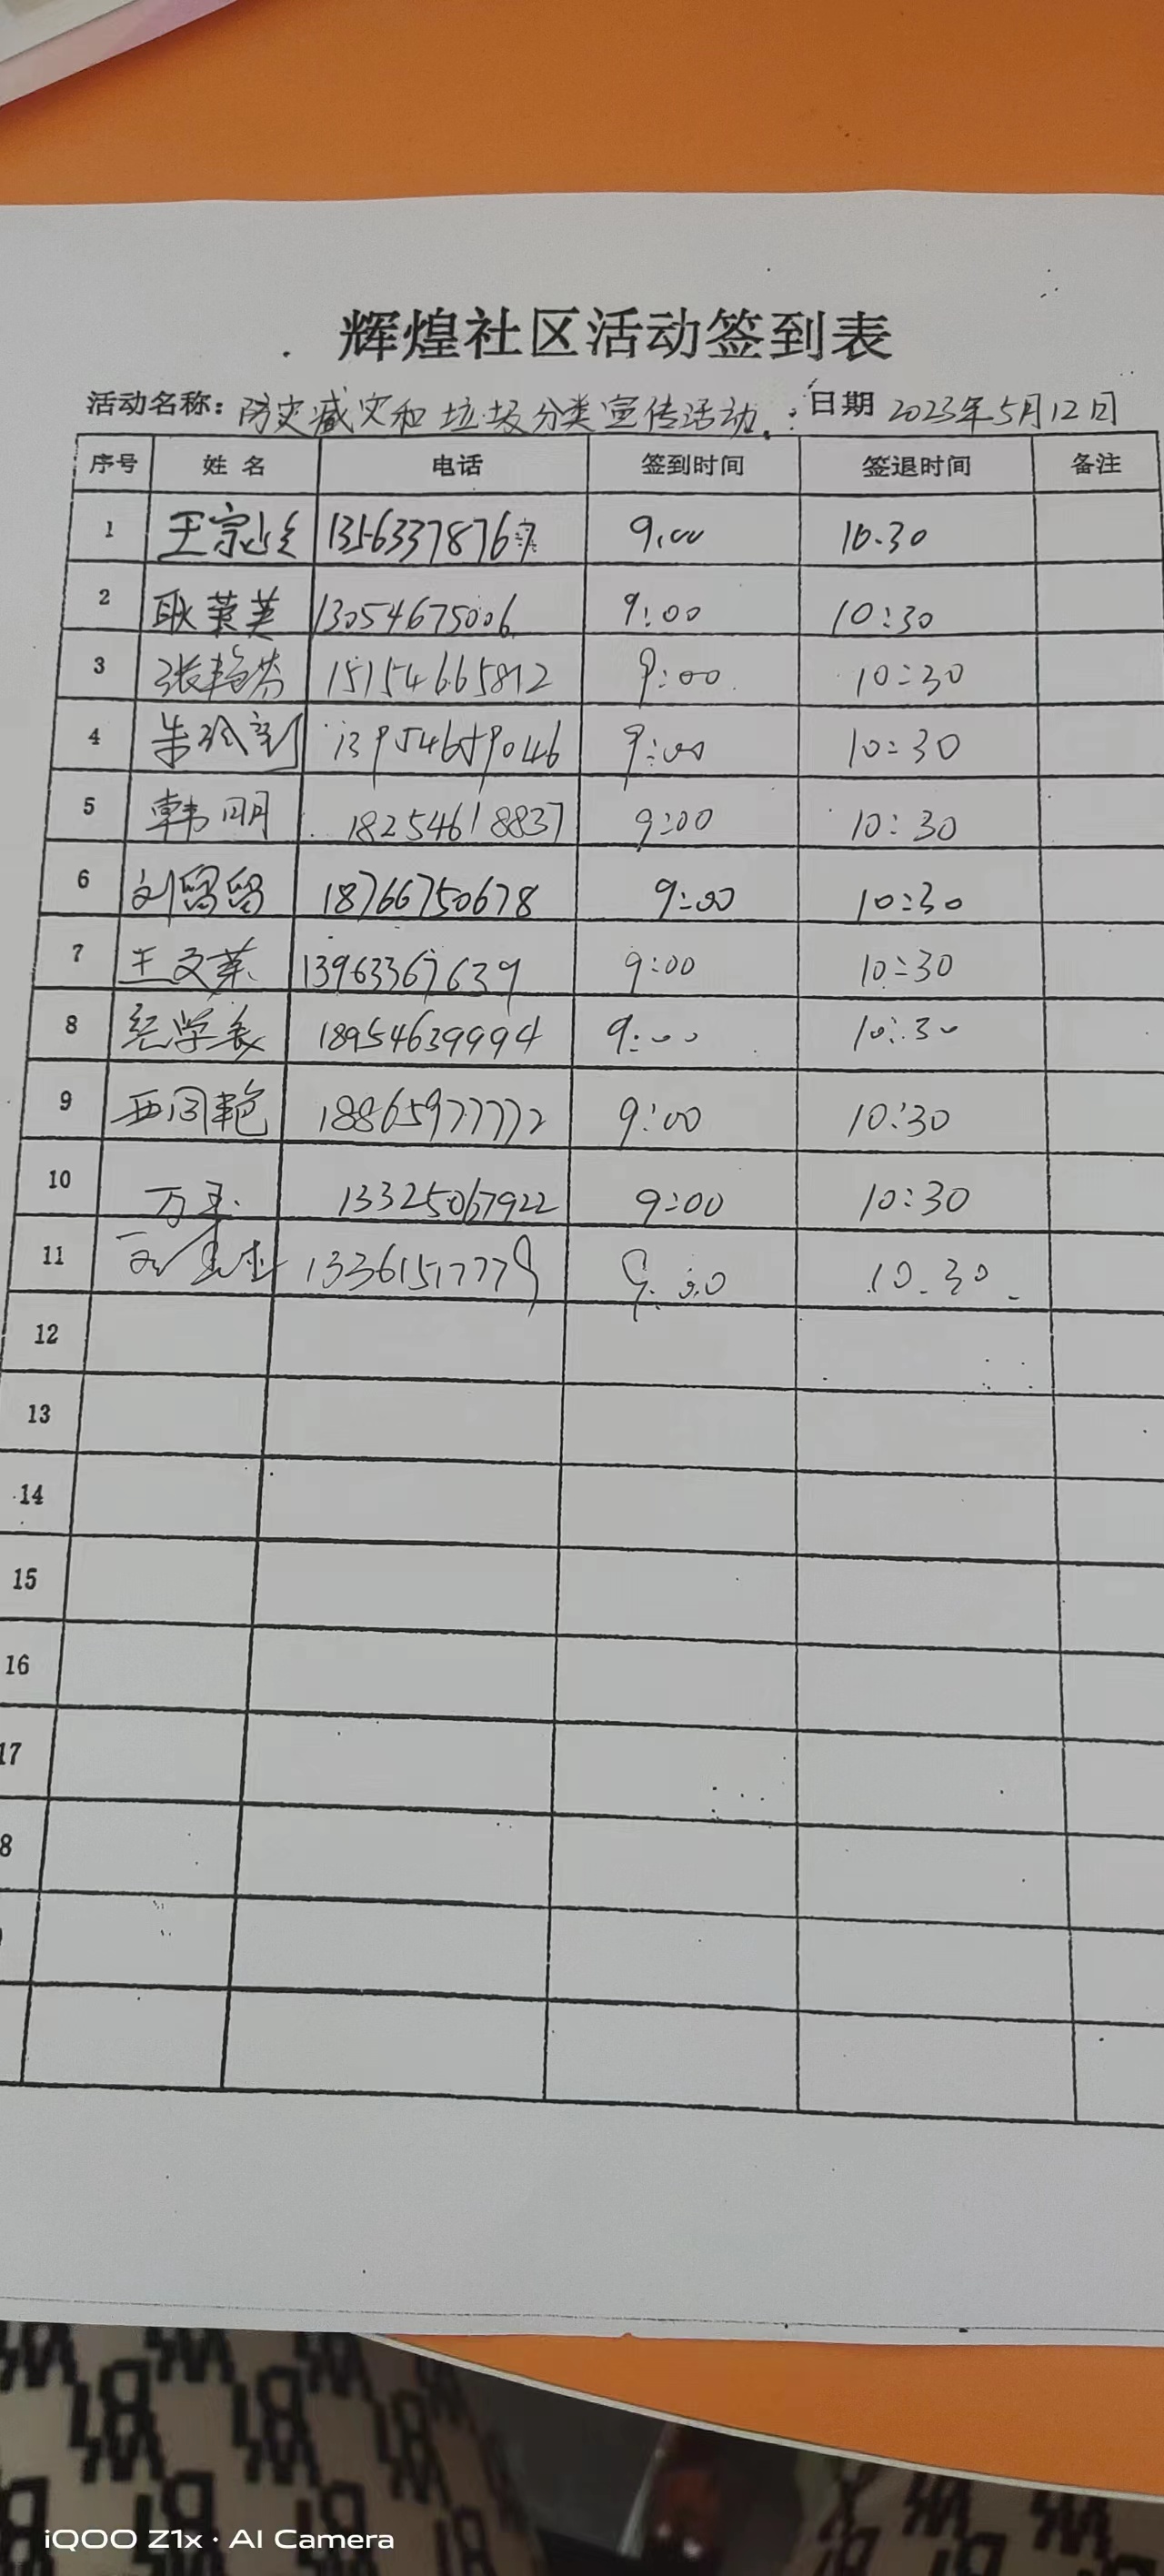 辉煌社区活动签到表
活动名称: 防灾减灾和垃圾分类宣传活动 日期 2023年5月12日
序号 姓名 电话 签到时间 签退时间 备注
1 王宗 9.00 10.30
2 耿 13054675006 9:00 10:30
3 张艳芬 15154665812 9:00 10:30
4 朱 13954659046 9:00 10:30
5 韩明 18254618837 9:00 10:30
6 刘留留 18766750678 9:00 10:30
7 王文英 13963367639 9:00 10:30
8 纪学 18954639994 9:00 10:30
9 18865977772 9:00 10:30
10 万玉 13325067922 9:00 10:30
11 13361517779 9.00 10.30
12
13
14
15
16
17
8
iQOO Z1x · AI Camera